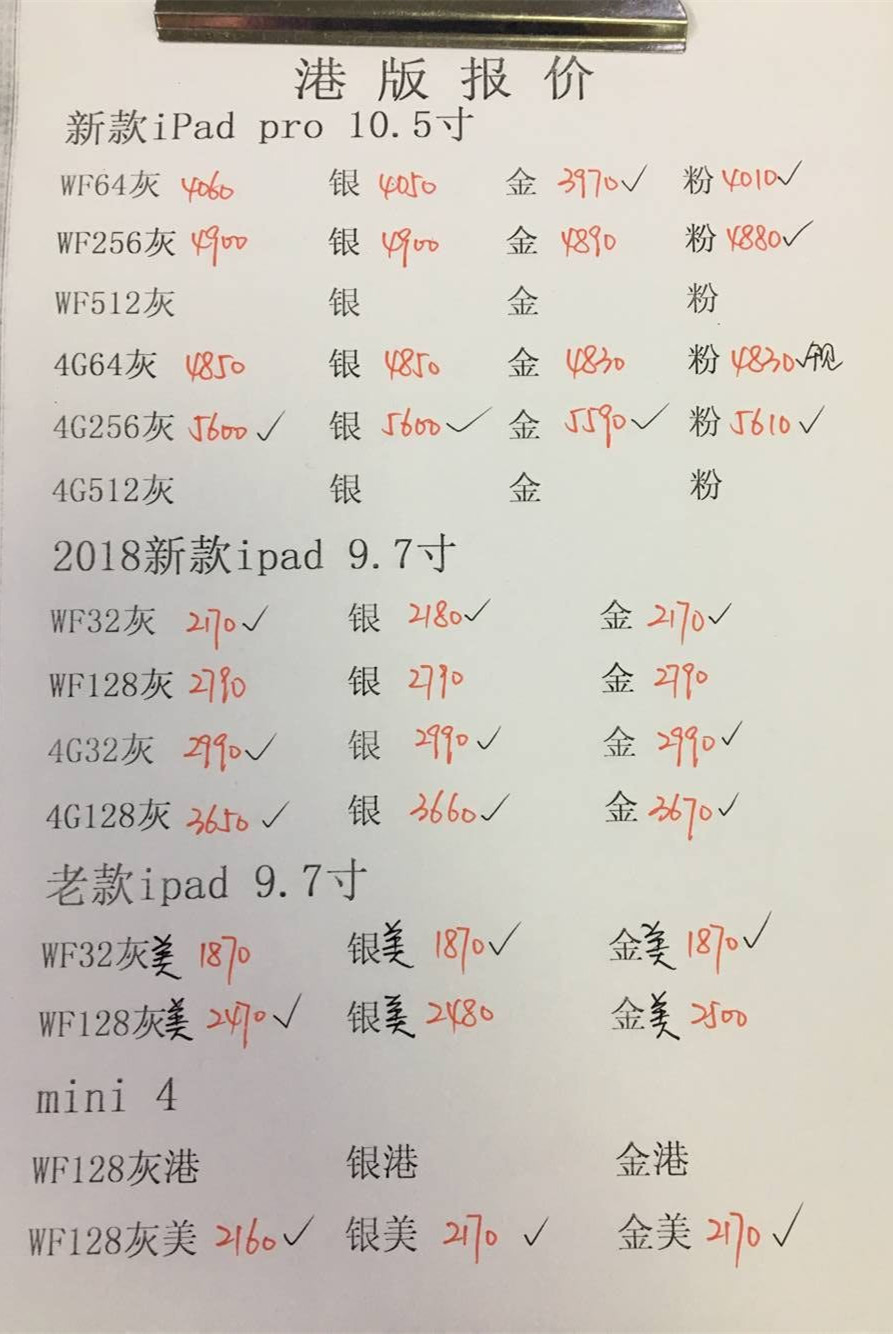 港版报价
新款iPad pro 10.5寸
WF64灰 4060 银 4050 金 3970✓ 粉 4010✓
WF256灰 4900 银 4900 金 4890 粉 4880✓
WF512灰 银 金 粉
4G64灰 4850 银 4850 金 4830 粉 4830✓
4G256灰 5600✓ 银 5600✓ 金 5590✓ 粉 5610✓
4G512灰 银 金 粉
2018新款ipad 9.7寸
WF32灰 2170✓ 银 2180✓ 金 2170✓
WF128灰 2790 银 2790 金 2790
4G32灰 2990✓ 银 2990✓ 金 2990✓
4G128灰 3650✓ 银 3660✓ 金 3670✓
老款ipad 9.7寸
WF32灰美 1870 银美 1870✓ 金美 1870✓
WF128灰美 2470✓ 银美 2480 金美 2500
mini 4
WF128灰港 银港 金港
WF128灰美 2160✓ 银美 2170✓ 金美 2170✓